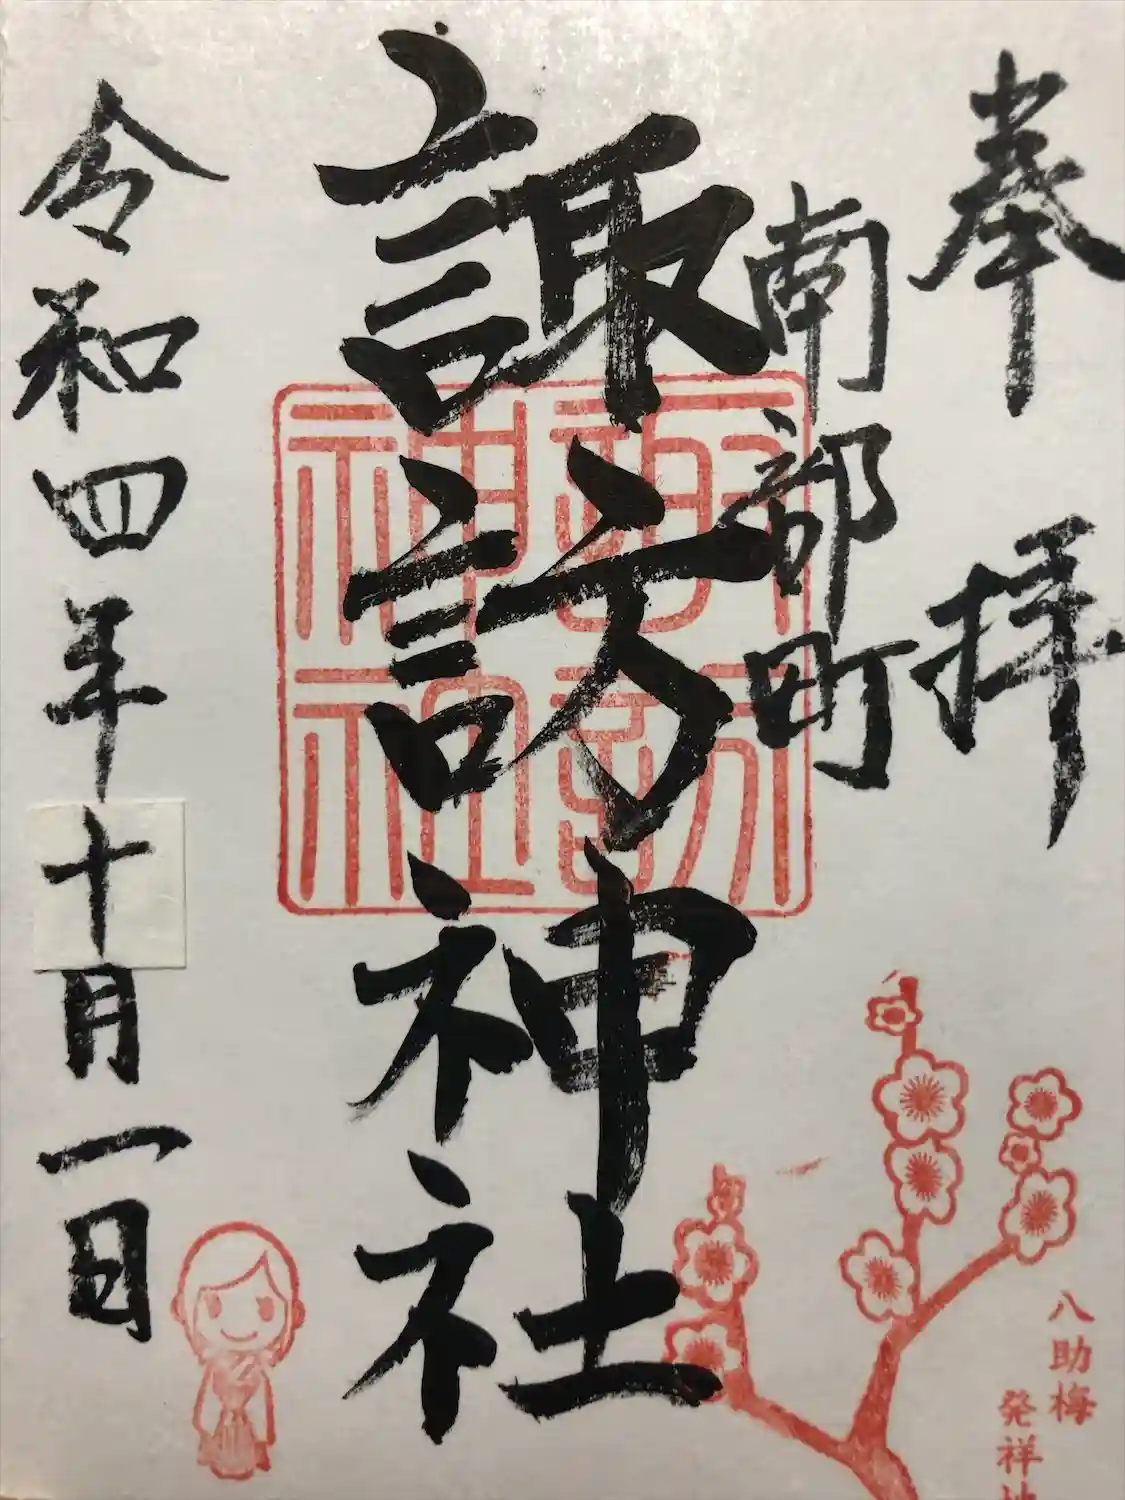 奉拝
南部町
諏訪神社
諏訪神社
令和四年十月一日
八助梅
発祥地